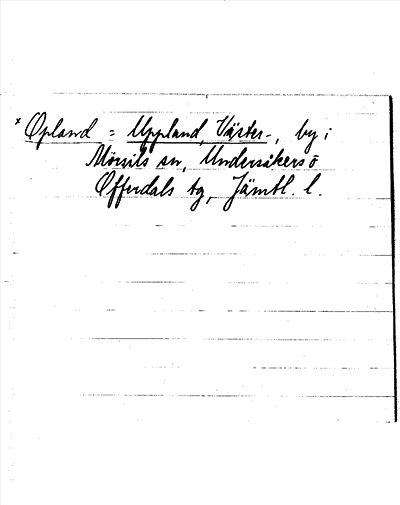 x Opland = Uppland, Väster-, by i
Mörsils sn, Undersåkers o
Offerdals tg, Jämtl. l.